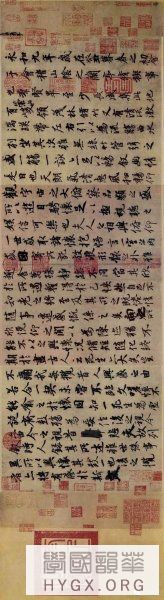 永和九年歲在癸丑暮春之初會
于會稽山陰之蘭亭脩稧事
也群賢畢至少長咸集此地
有崇山峻領茂林脩竹又有清流激
湍暎帶左右引以為流觴曲水
列坐其次雖無絲竹管弦之
盛一觴一詠亦足以暢敘幽情
是日也天朗氣清惠風和暢仰
觀宇宙之大俯察品類之盛
所以遊目騁懷足以極視聽之
娛信可樂也夫人之相與俯仰
一世或取諸懷抱悟言一室之內
或因寄所託放浪形骸之外雖
趣舍萬殊靜躁不同當其欣
於所遇蹔得於己怏然自足不
知老之將至及其所之既惓情
隨事遷感慨係之矣向之所
欣俛仰之閒以為陳迹猶不
能不以之興懷況脩短隨化終
期於盡古人云死生亦大矣豈
不痛哉每攬昔人興感之由
若合一契未嘗不臨文嗟悼不
能喻之於懷固知一死生為虛
誕齊彭殤為妄作後之視今
亦由今之視昔悲夫故列
敘時人錄其所述雖世殊事
異所以興懷其致一也後之攬
者亦將有感於斯文
HYGX.ORG